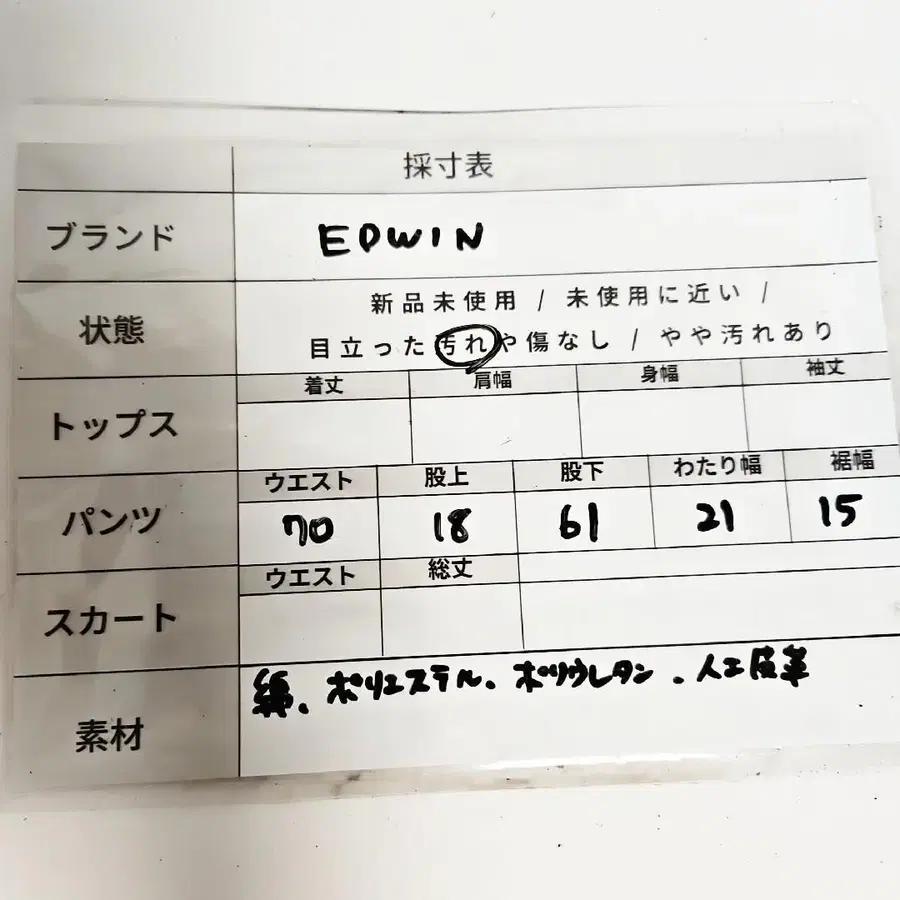 採寸表
ブランド EDWIN
状態 新品未使用 / 未使用に近い /
目立った汚れや傷なし / やや汚れあり
トップス 着丈 肩幅 身幅 袖丈
パンツ ウエスト 股上 股下 わたり幅 裾幅
70 18 61 21 15
スカート ウエスト 総丈
素材 綿、ポリエステル、ポリウレタン、人工皮革